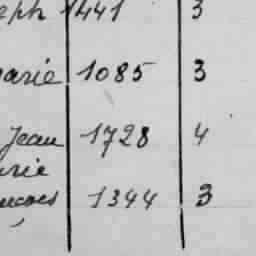 eph 1441 3
arie 1085 3
Jean 1728 4
rie
ncoes 1344 3